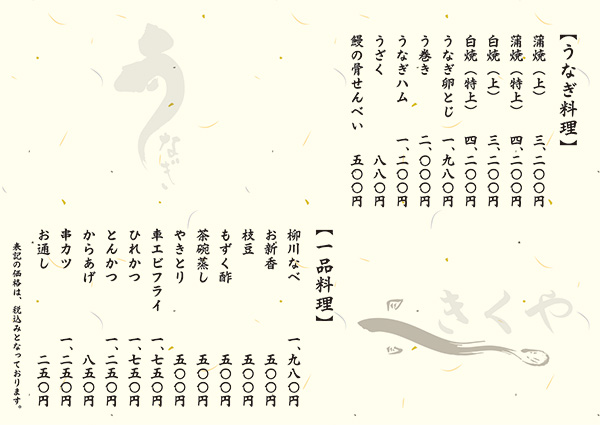 【うなぎ料理】
蒲焼（上） 三、二〇〇円
蒲焼（特上） 四、二〇〇円
白焼（上） 三、二〇〇円
白焼（特上） 四、二〇〇円
うなぎ卵とじ 一、九八〇円
う巻き 二、〇〇〇円
うなぎハム 一、二〇〇円
うざく 八八〇円
鰻の骨せんべい 五〇〇円
うなぎ
【一品料理】
柳川なべ 一、九八〇円
お新香 五〇〇円
枝豆 五〇〇円
もずく酢 五〇〇円
茶碗蒸し 五〇〇円
やきとり 五〇〇円
車エビフライ 一、七五〇円
ひれかつ 一、七五〇円
とんかつ 一、二五〇円
からあげ 八五〇円
串カツ 一、二五〇円
お通し 二五〇円
表記の価格は、税込みとなっております。
きくや